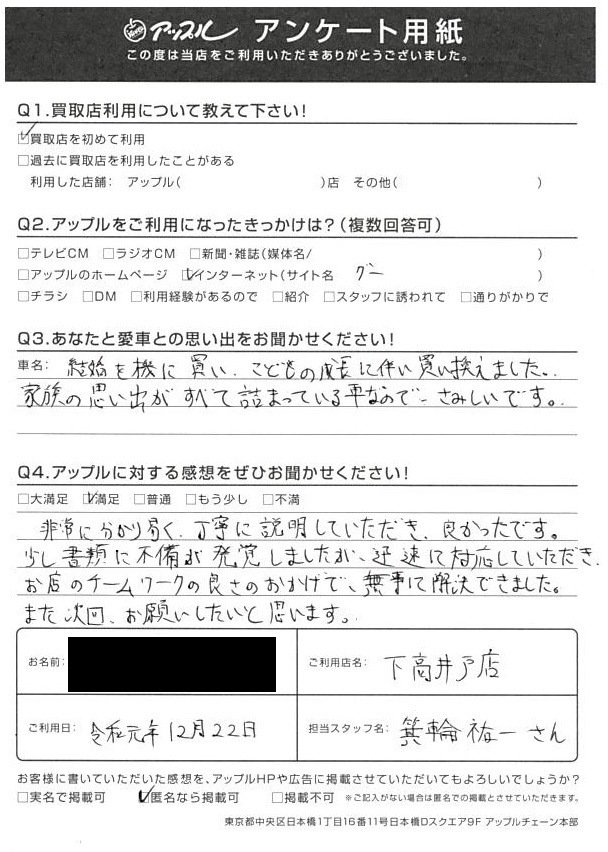 アップル アンケート用紙
この度は当店をご利用いただきありがとうございました。
Q1.買取店利用について教えて下さい!
☑買取店を初めて利用
□過去に買取店を利用したことがある
利用した店舗: アップル( )店 その他( )
Q2.アップルをご利用になったきっかけは?(複数回答可)
□テレビCM □ラジオCM □新聞・雑誌(媒体名/ )
□アップルのホームページ ☑インターネット(サイト名 グー )
□チラシ □DM □利用経験があるので □紹介 □スタッフに誘われて □通りがかりで
Q3.あなたと愛車との思い出をお聞かせください!
車名: 結婚を機に買い、こどもの成長に伴い買い換えました。
家族の思い出がすべて詰まっている車なので、さみしいです。
Q4.アップルに対する感想をぜひお聞かせください!
□大満足 ☑満足 □普通 □もう少し □不満
非常に分かり易く、丁寧に説明していただき、良かったです。
少し書類に不備が発覚しましたが、迅速に対応していただき、
お店のチームワークの良さのおかげで、無事に解決できました。
また次回、お願いしたいと思います。
お名前: ご利用店名: 下高井戸店
ご利用日: 令和元年12月22日 担当スタッフ名: 箕輪祐一さん
お客様に書いていただいた感想を、アップルHPや広告に掲載させていただいてもよろしいでしょうか?
□実名で掲載可 ☑匿名なら掲載可 □掲載不可 ※ご記入がない場合は匿名での掲載とさせていただきます。
東京都中央区日本橋1丁目16番11号日本橋Dスクエア9F アップルチェーン本部